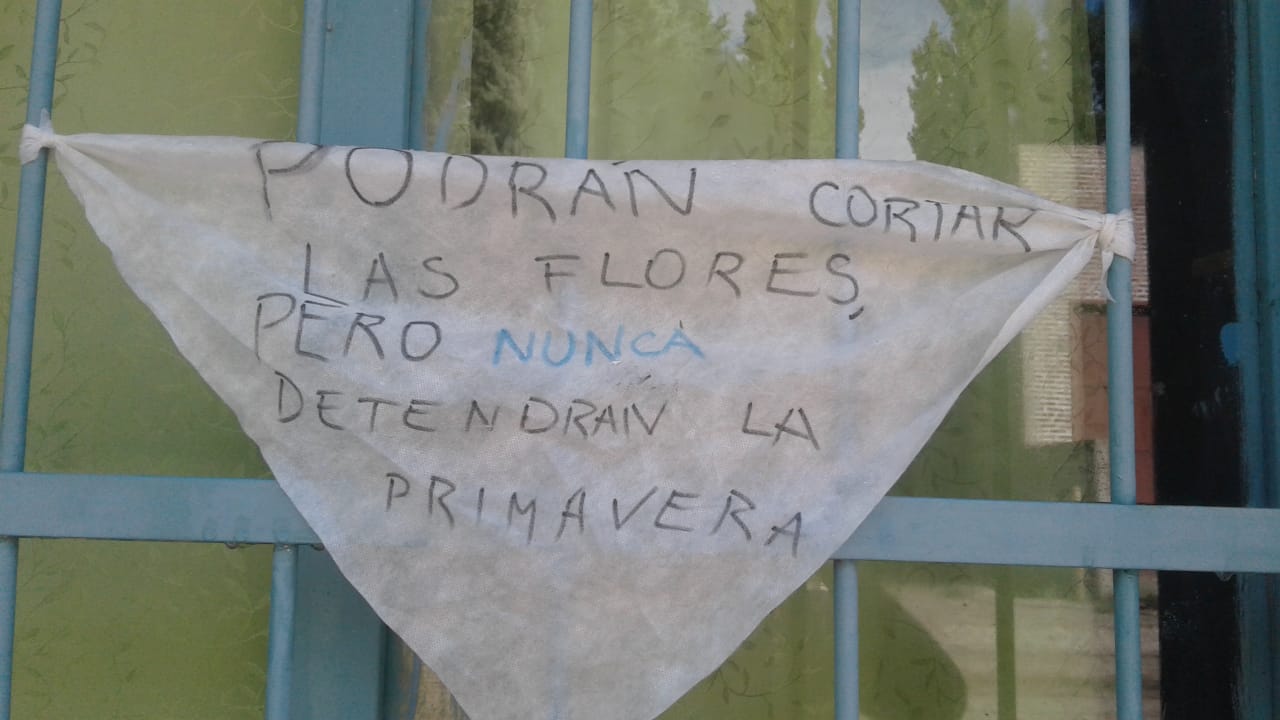 PODRÁN CORTAR
LAS FLORES,
PERO NUNCA
DETENDRAN LA
PRIMAVERA